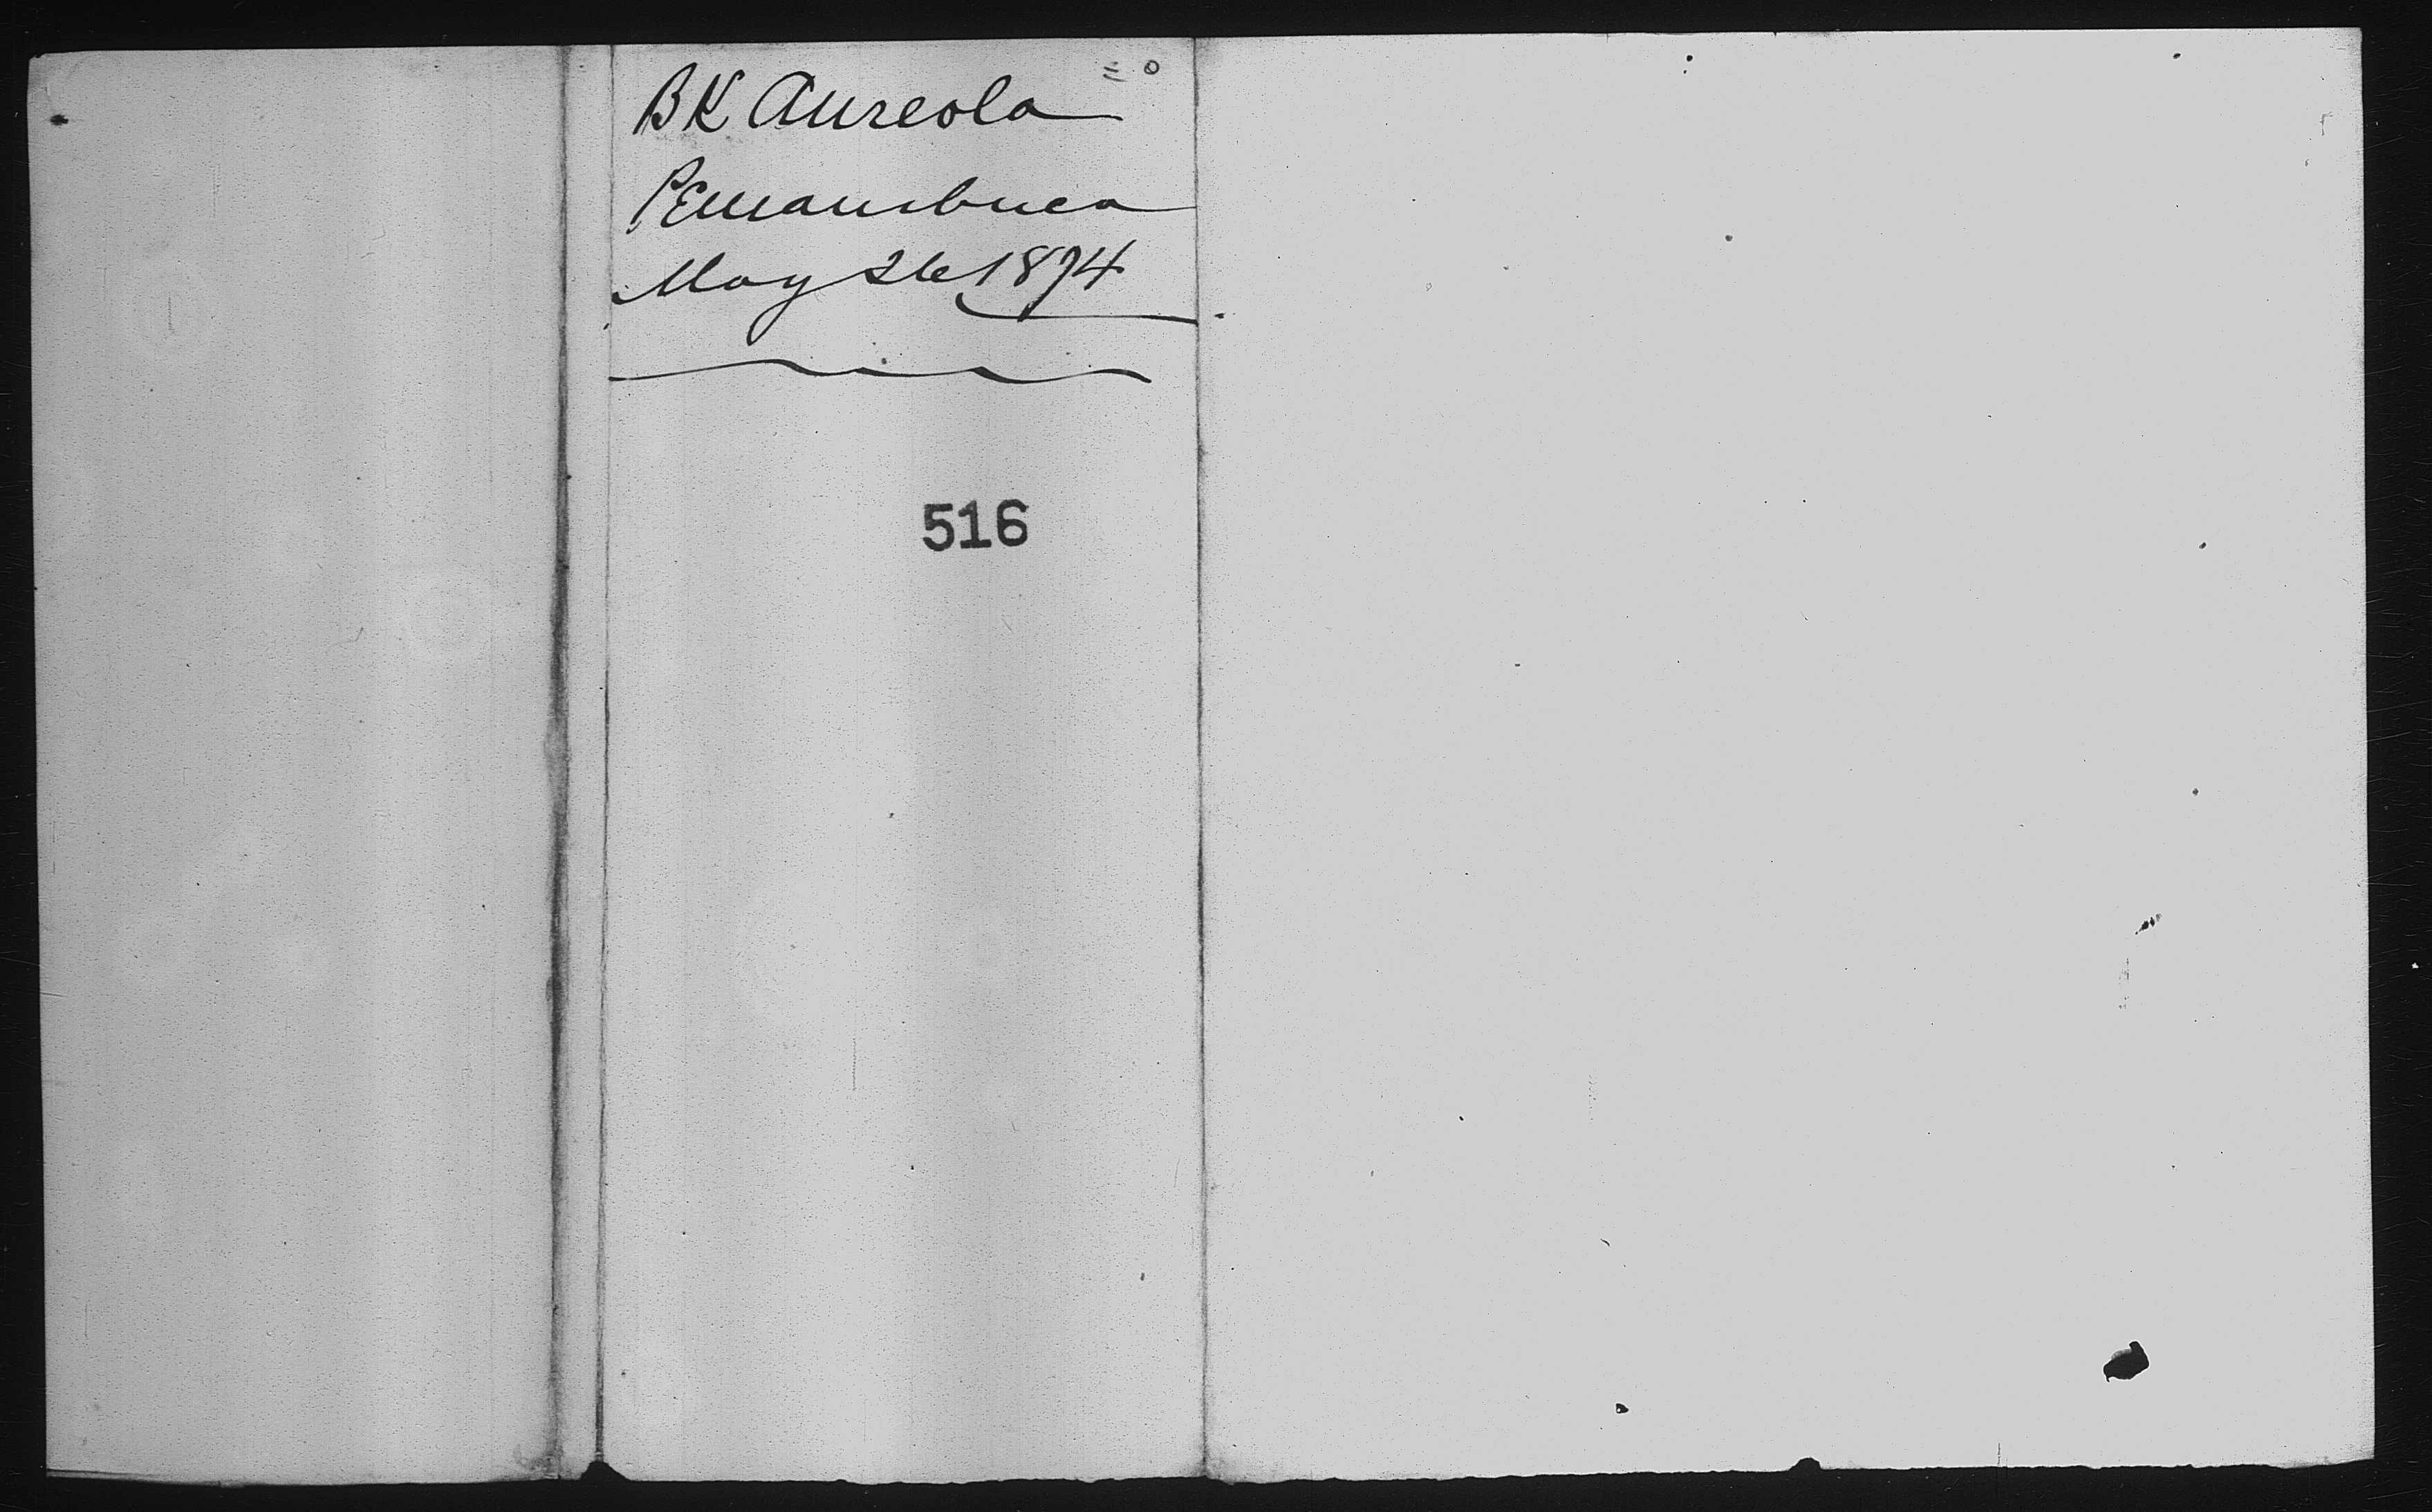 BK Aureola
Pernambuco
May 26 1874
516